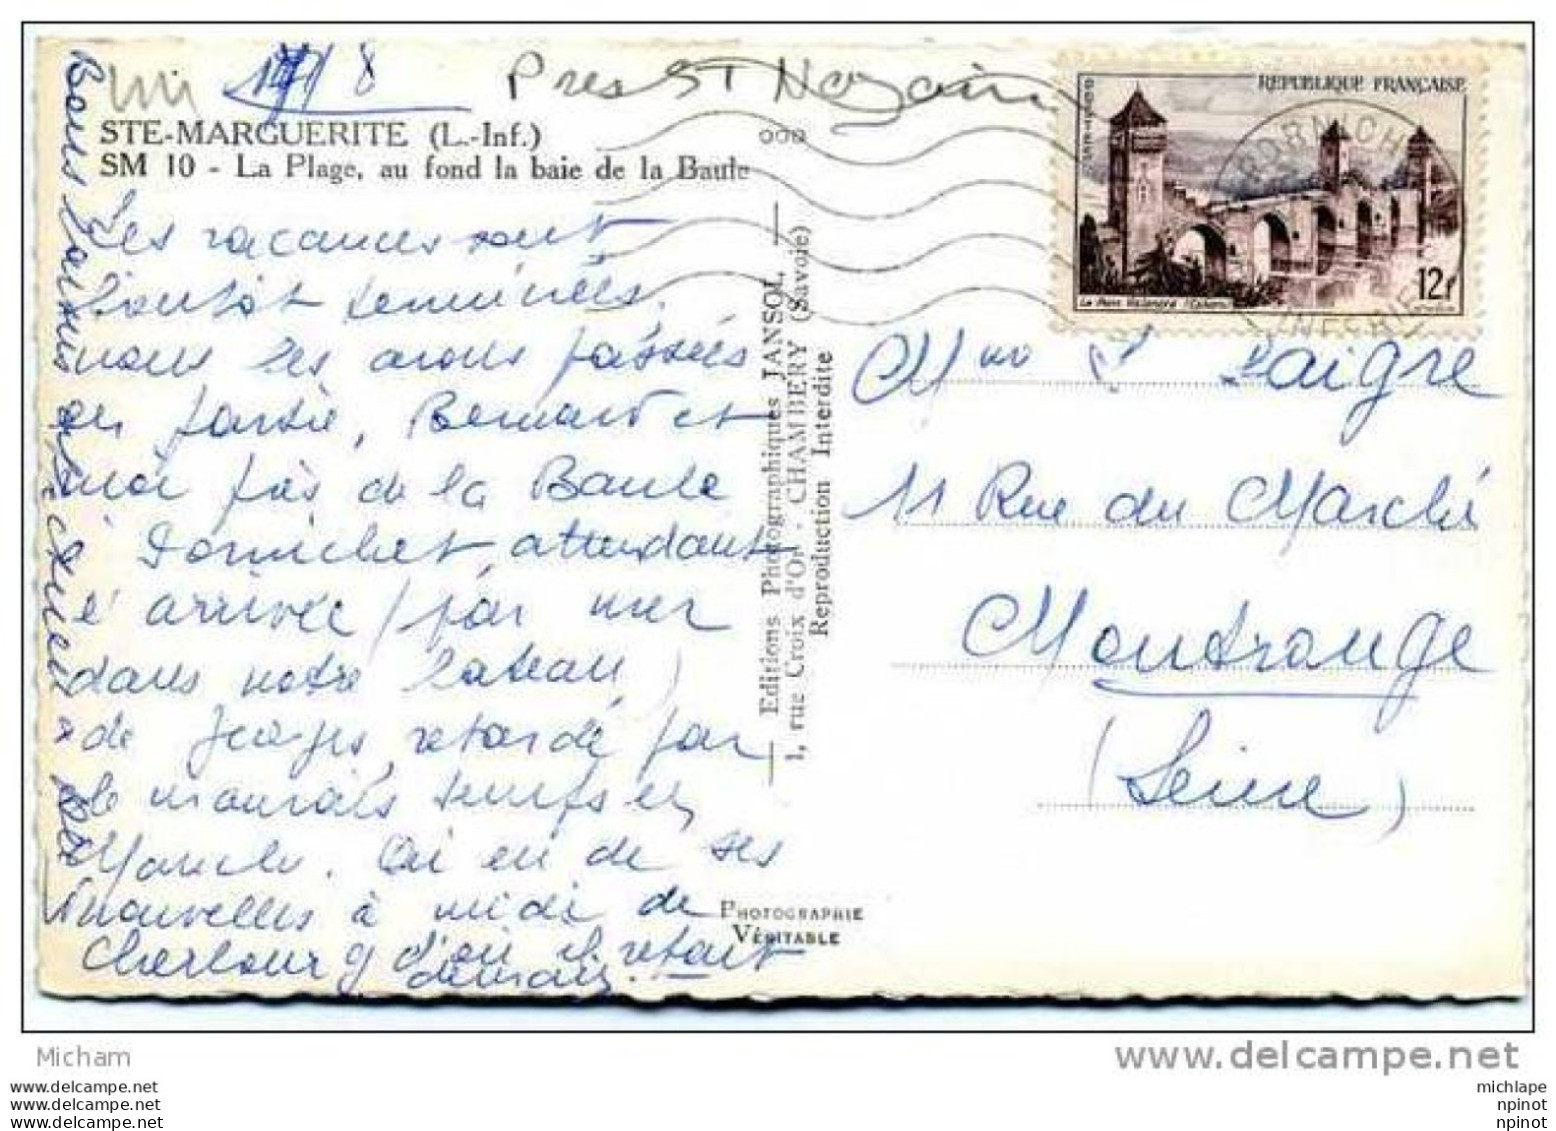 17/8
Pres St Nazaire
STE-MARGUERITE (L.-Inf.)
SM 10 - La Plage, au fond la baie de la Baule
Les vacances sont
bientôt terminées.
nous les avons passées
en partie, Bernard et
moi près de la Baule
à Pornichet, attendant
l'arrivée (par mer
dans notre bateau)
de Georges, retardé par
le mauvais temps en
Manche. Ai eu de ses
nouvelles à midi de
Cherbourg d'où il repart
demain.
Bons baisers
Editions Photographiques JANSOL
1, rue Croix d'Or - CHAMBERY (Savoie)
Reproduction Interdite
PHOTOGRAPHIE
VÉRITABLE
REPUBLIQUE FRANÇAISE
Le Pont Valentré (Cahors)
12f
PORNICHET
Mme Laigre
11 Rue du Marché
Montrouge
(Seine)
Micham
www.delcampe.net
www.delcampe.net
www.delcampe.net
www.delcampe.net
michlape
npinot
npinot